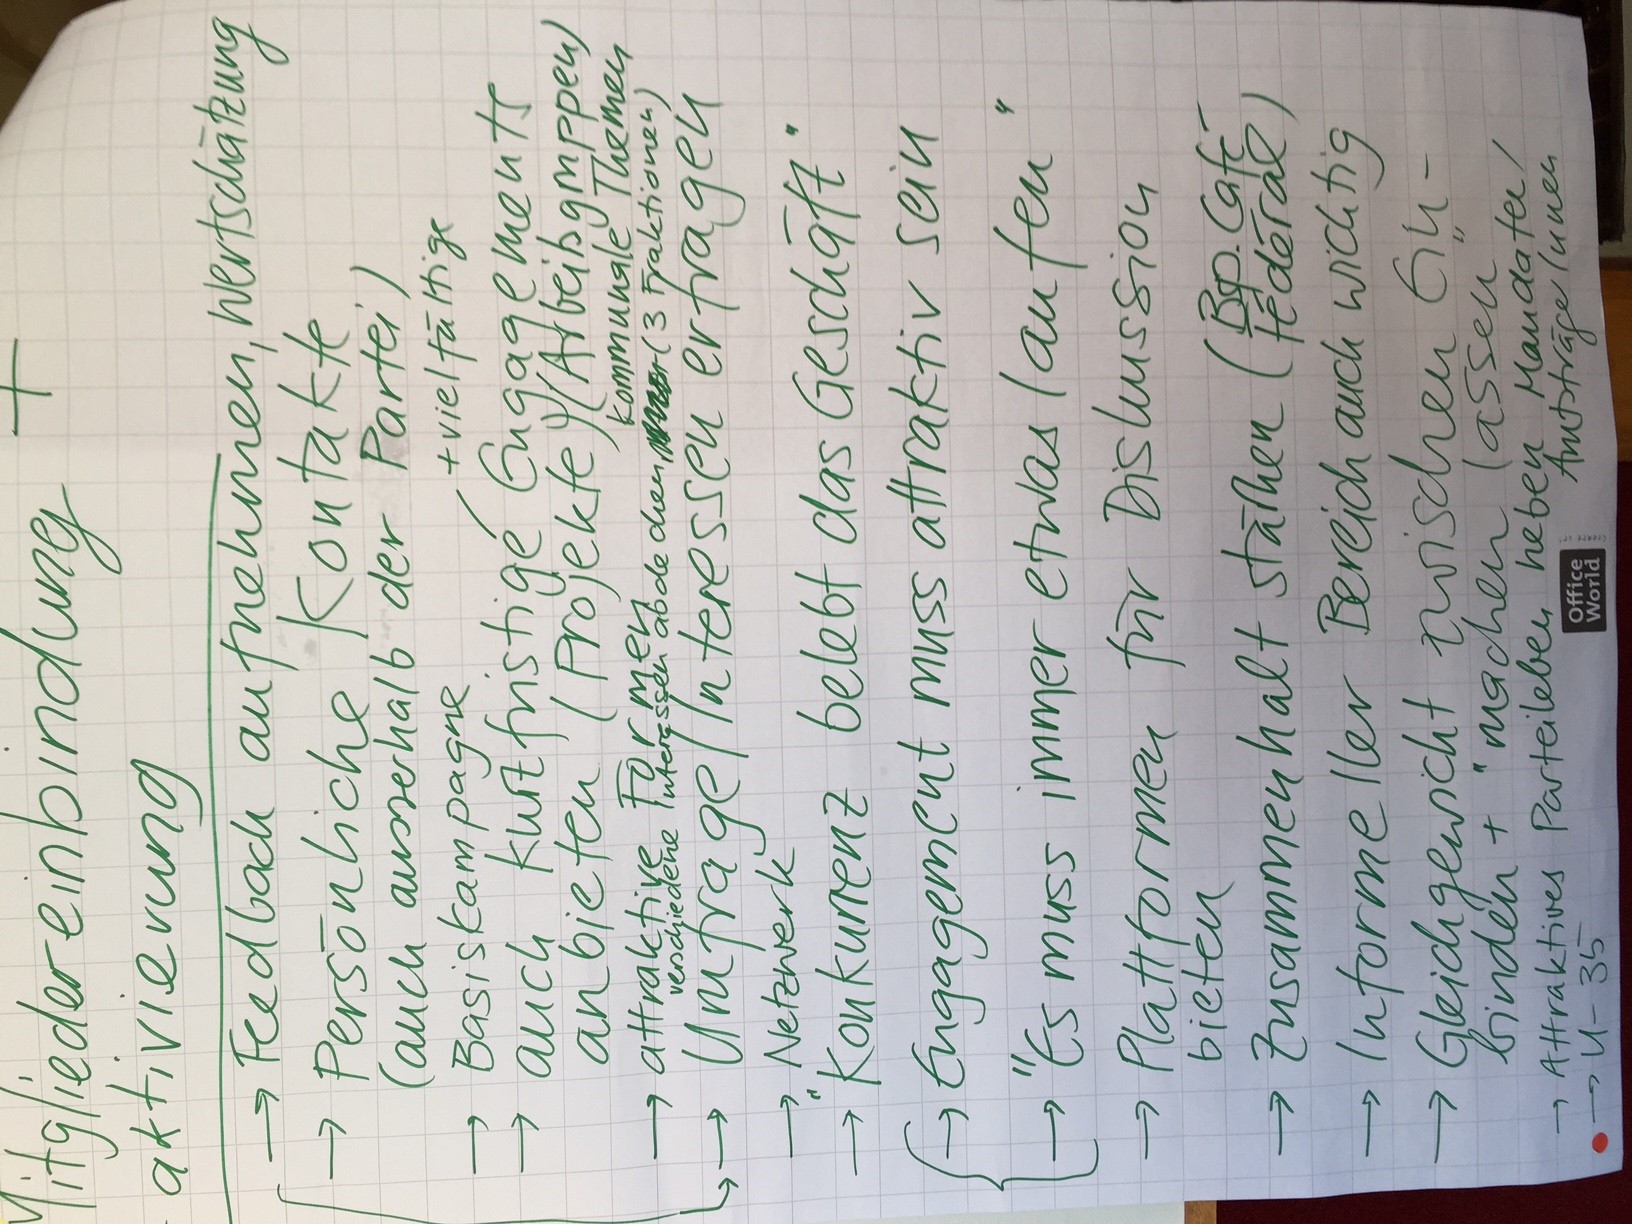 Mitgliedereinbindung +
- aktivierung
→ Feedback aufnehmen, wertschätzung
→ Persönliche Kontakte
(auch ausserhalb der Partei)
→ Basiskampagne + vielfältige
→ auch kurzfristige Engagements
anbieten (Projekte)/(Arbeitsgruppen)
kommunale Themen
→ attraktive Formen
verschiedene Interessen abdecken (3 Fraktionen)
→ Umfrage / Interessen erfragen
→ Netzwerk
→ "Konkurrenz belebt das Geschäft"
→ Engagement muss attraktiv sein
→ "Es muss immer etwas laufen"
→ Plattformen für Diskussion
bieten
→ Zusammenhalt stärken (Bsp. Café
fédérale)
→ Informeller Bereich auch wichtig
→ Gleichgewicht zwischen Ein-
binden + "machen lassen"
→ Attraktives Parteileben neben Mandaten/
Amtsträger/innen
→ U-35
Office
World